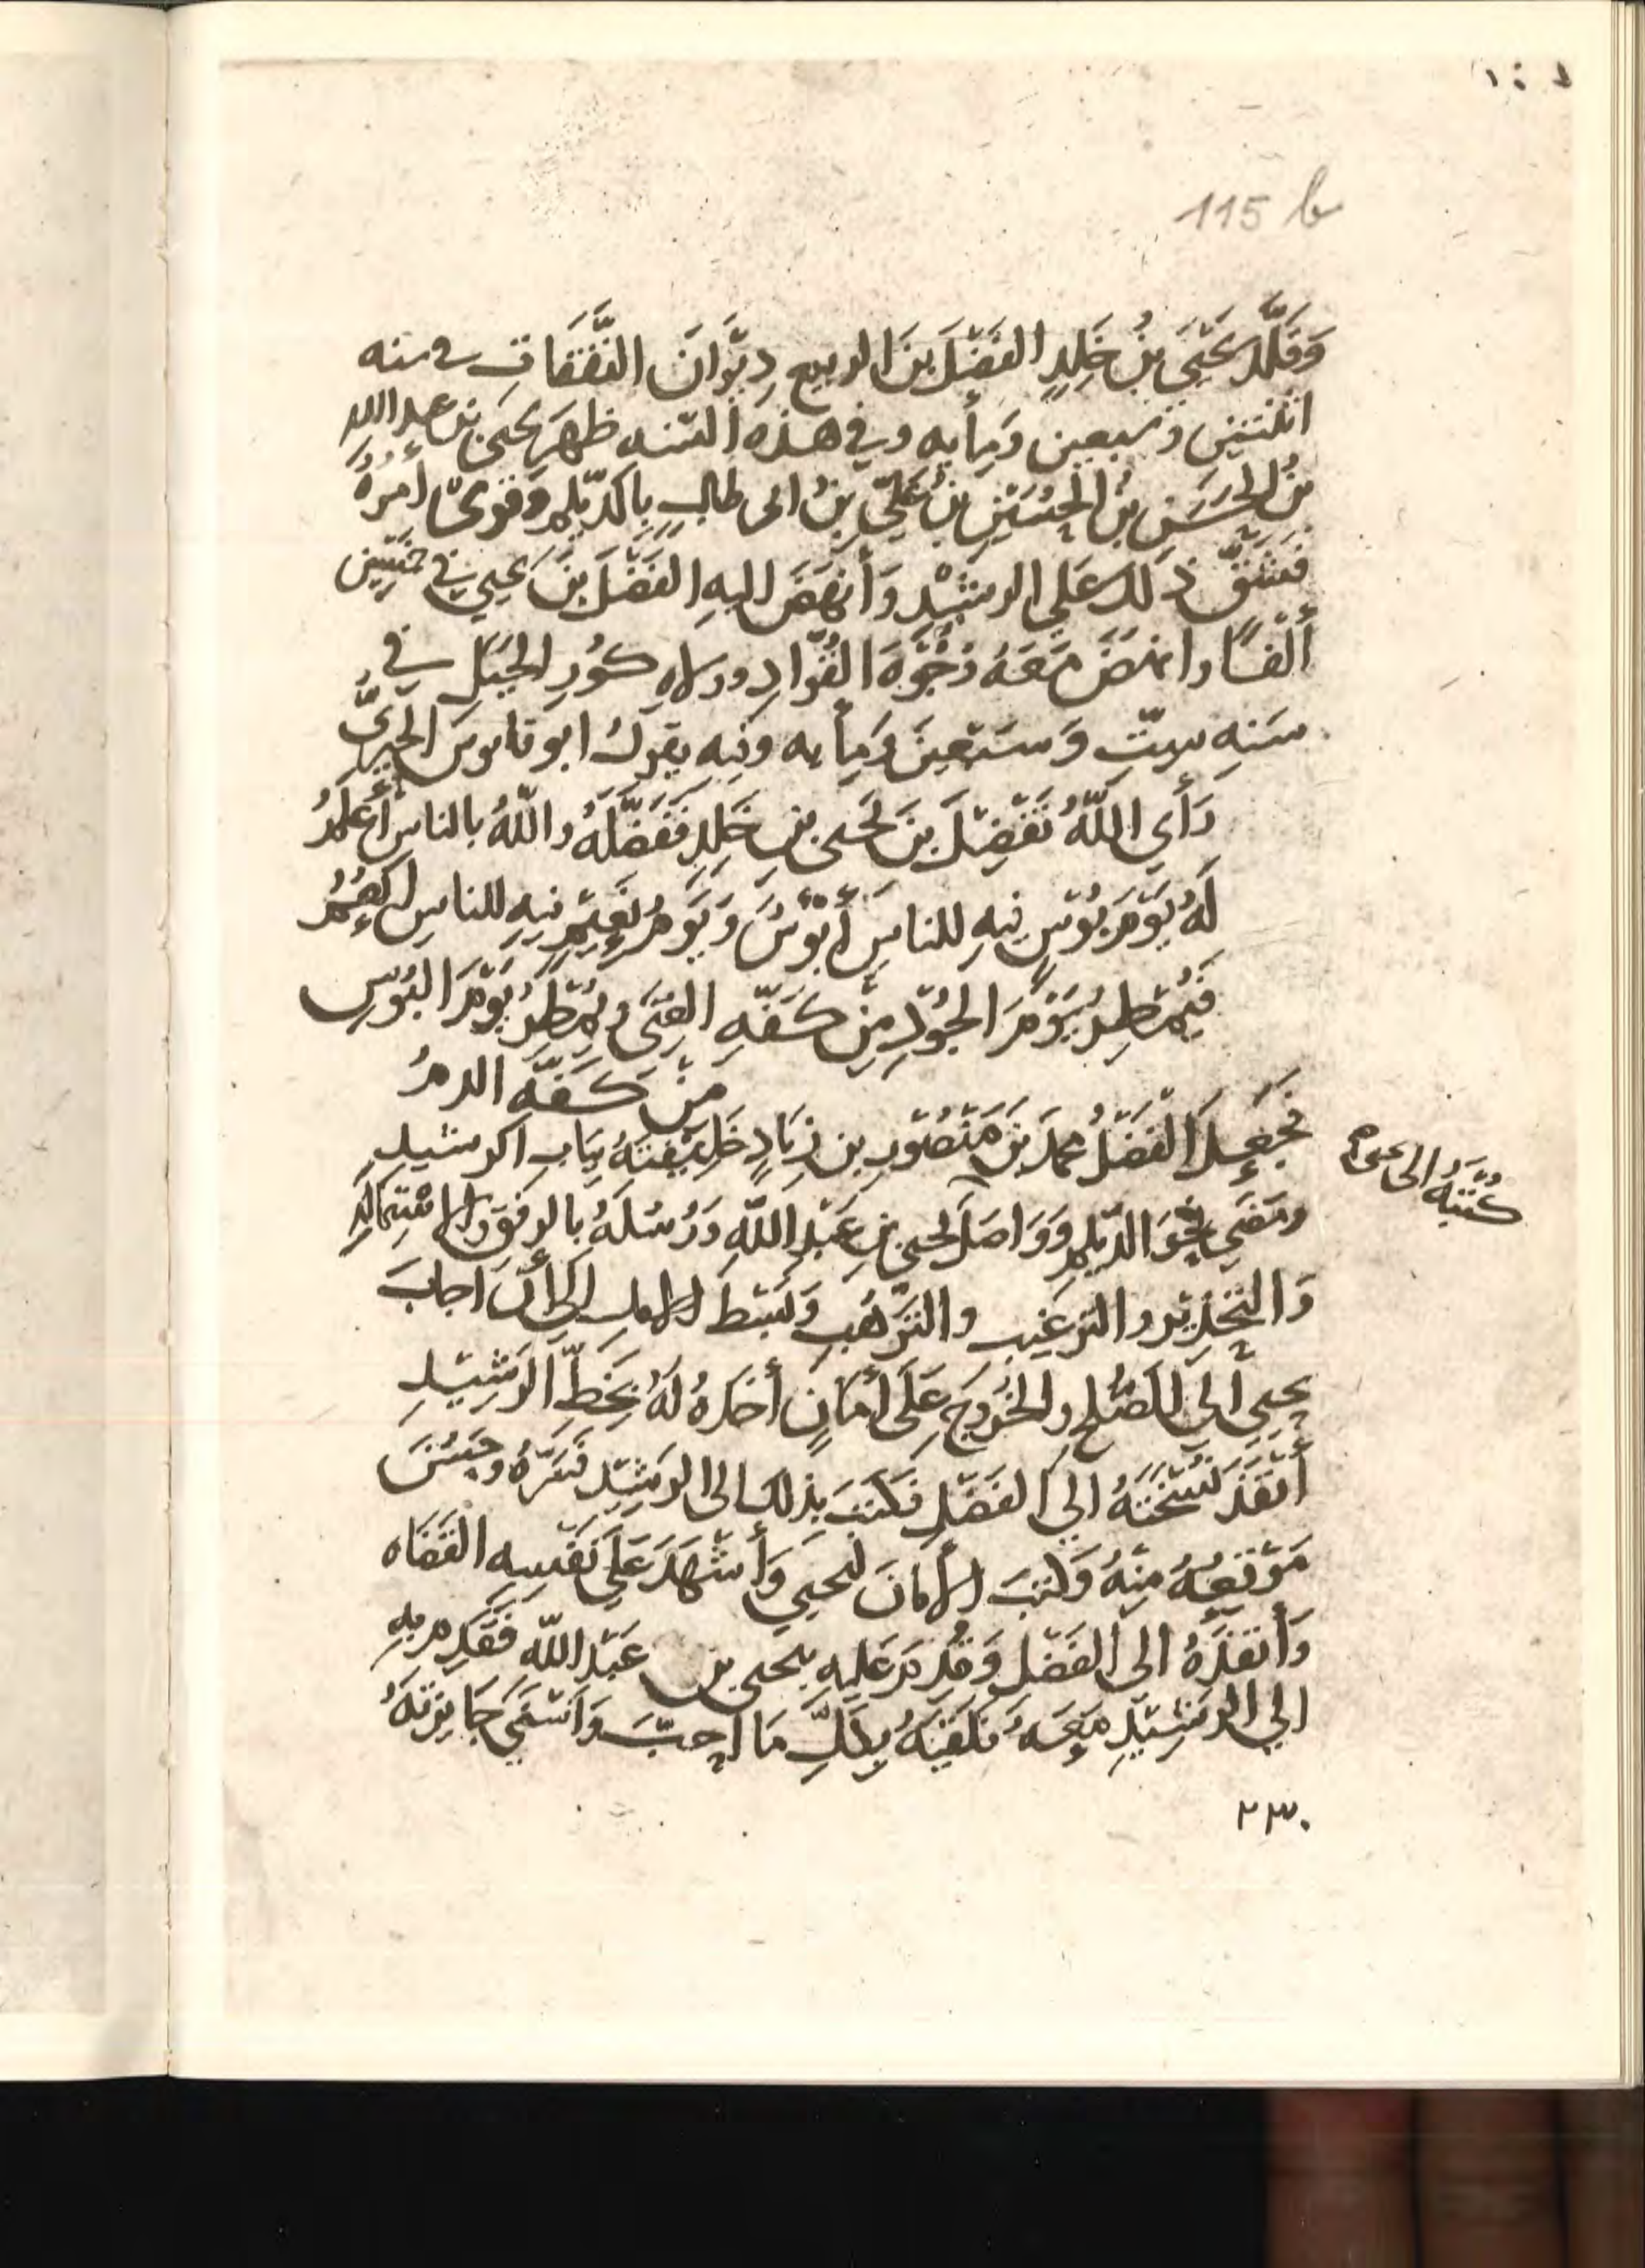 115 b
وَقَلَّدَ يَحْيَى بْنُ خَلِدٍ الفَضْلَ بنَ الربيع دِيْوَانَ النَّفَقَاتِ في سنه
اثنتين وسبعين ومِأيه وفي هذه السّنه ظهرَ يحيى بن عبد الله
بنُ الحَسَنِ بْنُ الحُسَيْنِ بْنُ عَلِيّ بْنُ ابى طالبٍ بِالدّيْلمِ وقوىَ امرُهُ
فشقّ ذلك على الرشيْد وَأنهَضَ اليهِ الفَضْلَ بْنَ يحيي في خمسِين
ألْفاً وانهضَ مَعَهُ وُجُوْهَ القُوّادِ وولاه كُوَرِ الجَبَلِ في
سَنِه سِتّ وَسَبْعِينَ وَمِأيه وفِيه يقولُ ابو قابوسَ الحِيرِىُّ
رَأَي اللّهُ تَفْضِيْلَ بْنَ يَحيى بنِ خَلِدٍ فَفَضَّلَهُ واللّهُ بالناسِ أعْلَمُ
لَهُ يَوْمُ بُؤسٍ فِيهِ للناسِ أَبْؤسٌ وَيَوْمُ نَعِيْمٍ فِيهِ للناسِ أنعُمُ
فَيُمْطِرُ يَوْمَ الجُوْدِ مِنْ كَفّهِ النَّدَى وَيُمْطِرُ يَوْمَ البُوْسِ
مِنْ كَفّهِ الدمُ
فجعلَ الفَضْلُ محمدَ بْنَ مَنْصُوْرِ بن زِيَادٍ خَلِيْفتَهُ بِبَابِ الرشيدِ
كُتُبَهُ الى
ومَضَي نحْوَ الدّيلمِ وَوَاصَلَ يحيى بنِ عَبْدِ اللّهِ وَرُسُلَهُ بالرفقِ والاسْتِمَالهِ
وَالتحْذِيْرِ والترْغيبِ والتّرهِيبِ وَبَسْط الامل الى أنْ اجابَ
يحيى الي الصُلحِ والخُرُوجَ عَلَي أمَانٍ أخذهُ لهُ بِخَطِّ الرشِيْدِ
أنْفَذَ نُسْخَتَهُ الي الفَضْلِ فَكَتَبَ بِذلك الى الرشِيْدِ فسَرّهُ وحَسُنَ
مَوْقِعُهُ مِنْهُ وَكتبَ الأمَانَ ليحيي وَأشْهَدَ عَلَي نَفْسِه القُضَاه
وَأنْفذَهُ الى الفَضْلِ وَقُدِمَ عَليهِ بيحيى بن عَبْد اللّه فَقَدِمَ بِهِ
الي الرشِيْدِ مَعَهُ فلَقِيَهُ بِكلّ مَا احبّ وَاسْنَي جَايزتهُ
٢٣٠